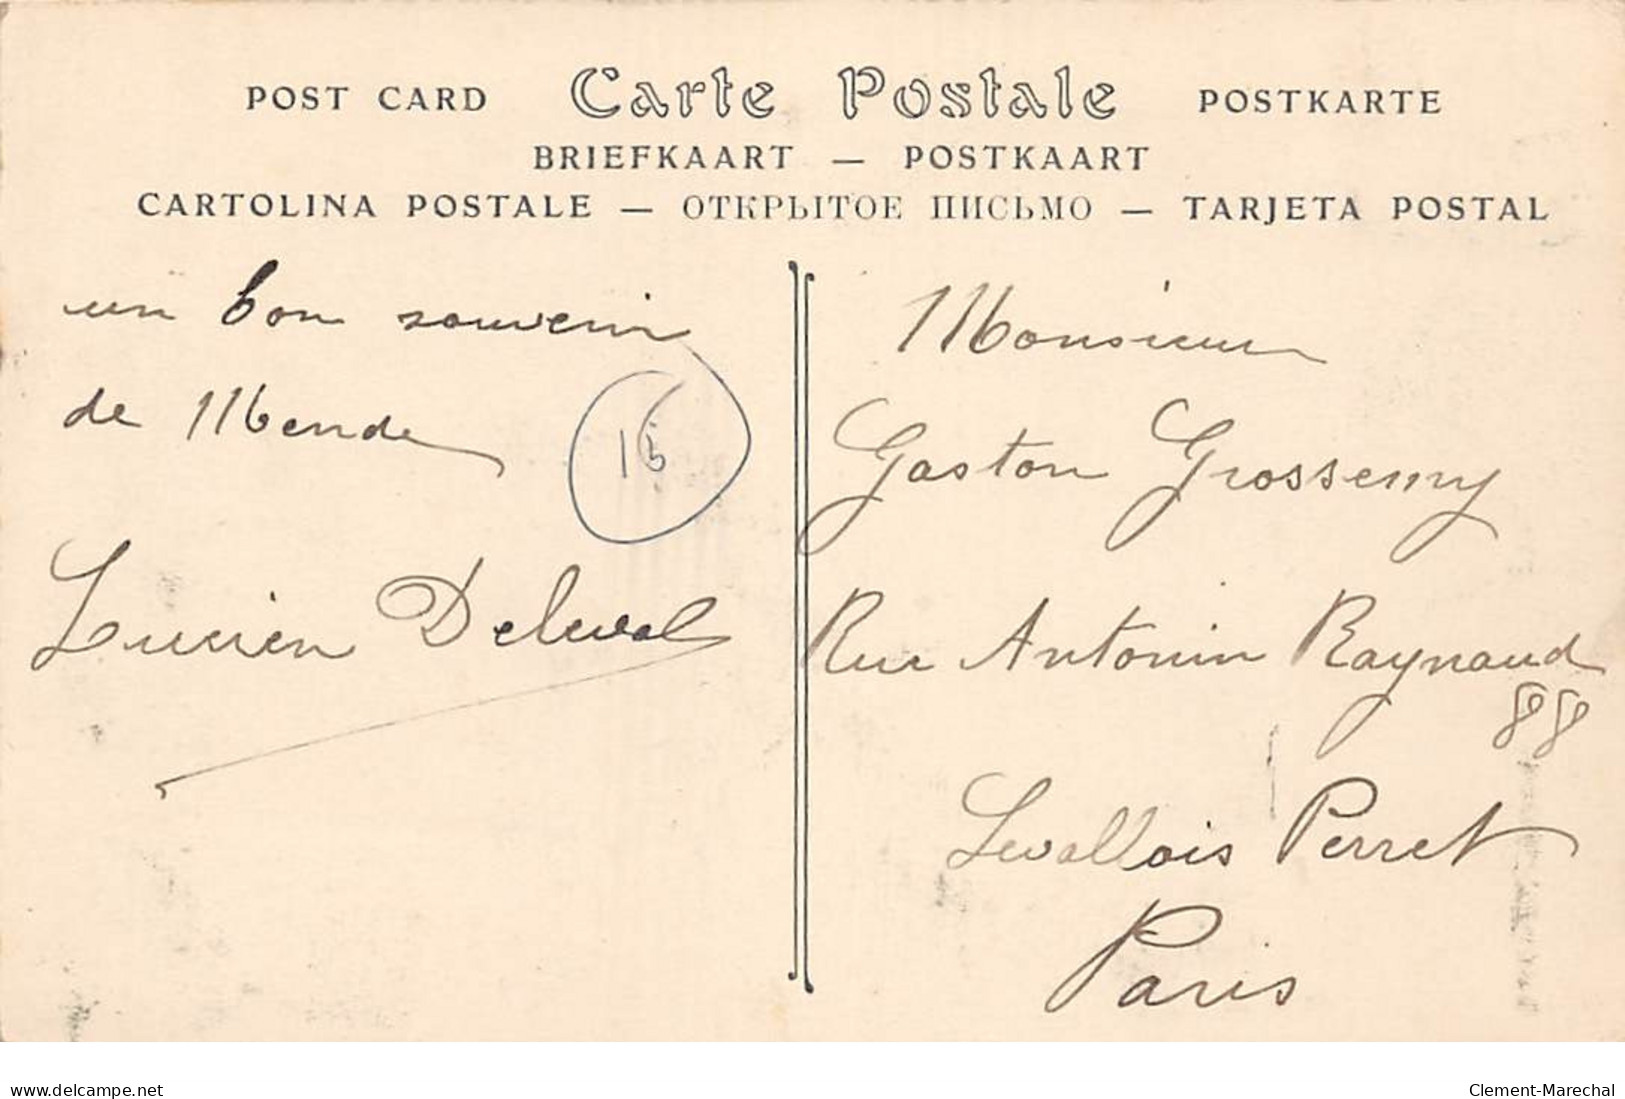 POST CARD Carte Postale POSTKARTE
BRIEFKAART — POSTKAART
CARTOLINA POSTALE — ОТКРЫТОЕ ПИСЬМО — TARJETA POSTAL
un bon souvenir
de Mende
15
Lucien Deleval
Monsieur
Gaston Grossemy
Rue Antonin Raynaud
88
Levallois Perret
Paris
www.delcampe.net
Clement-Marechal